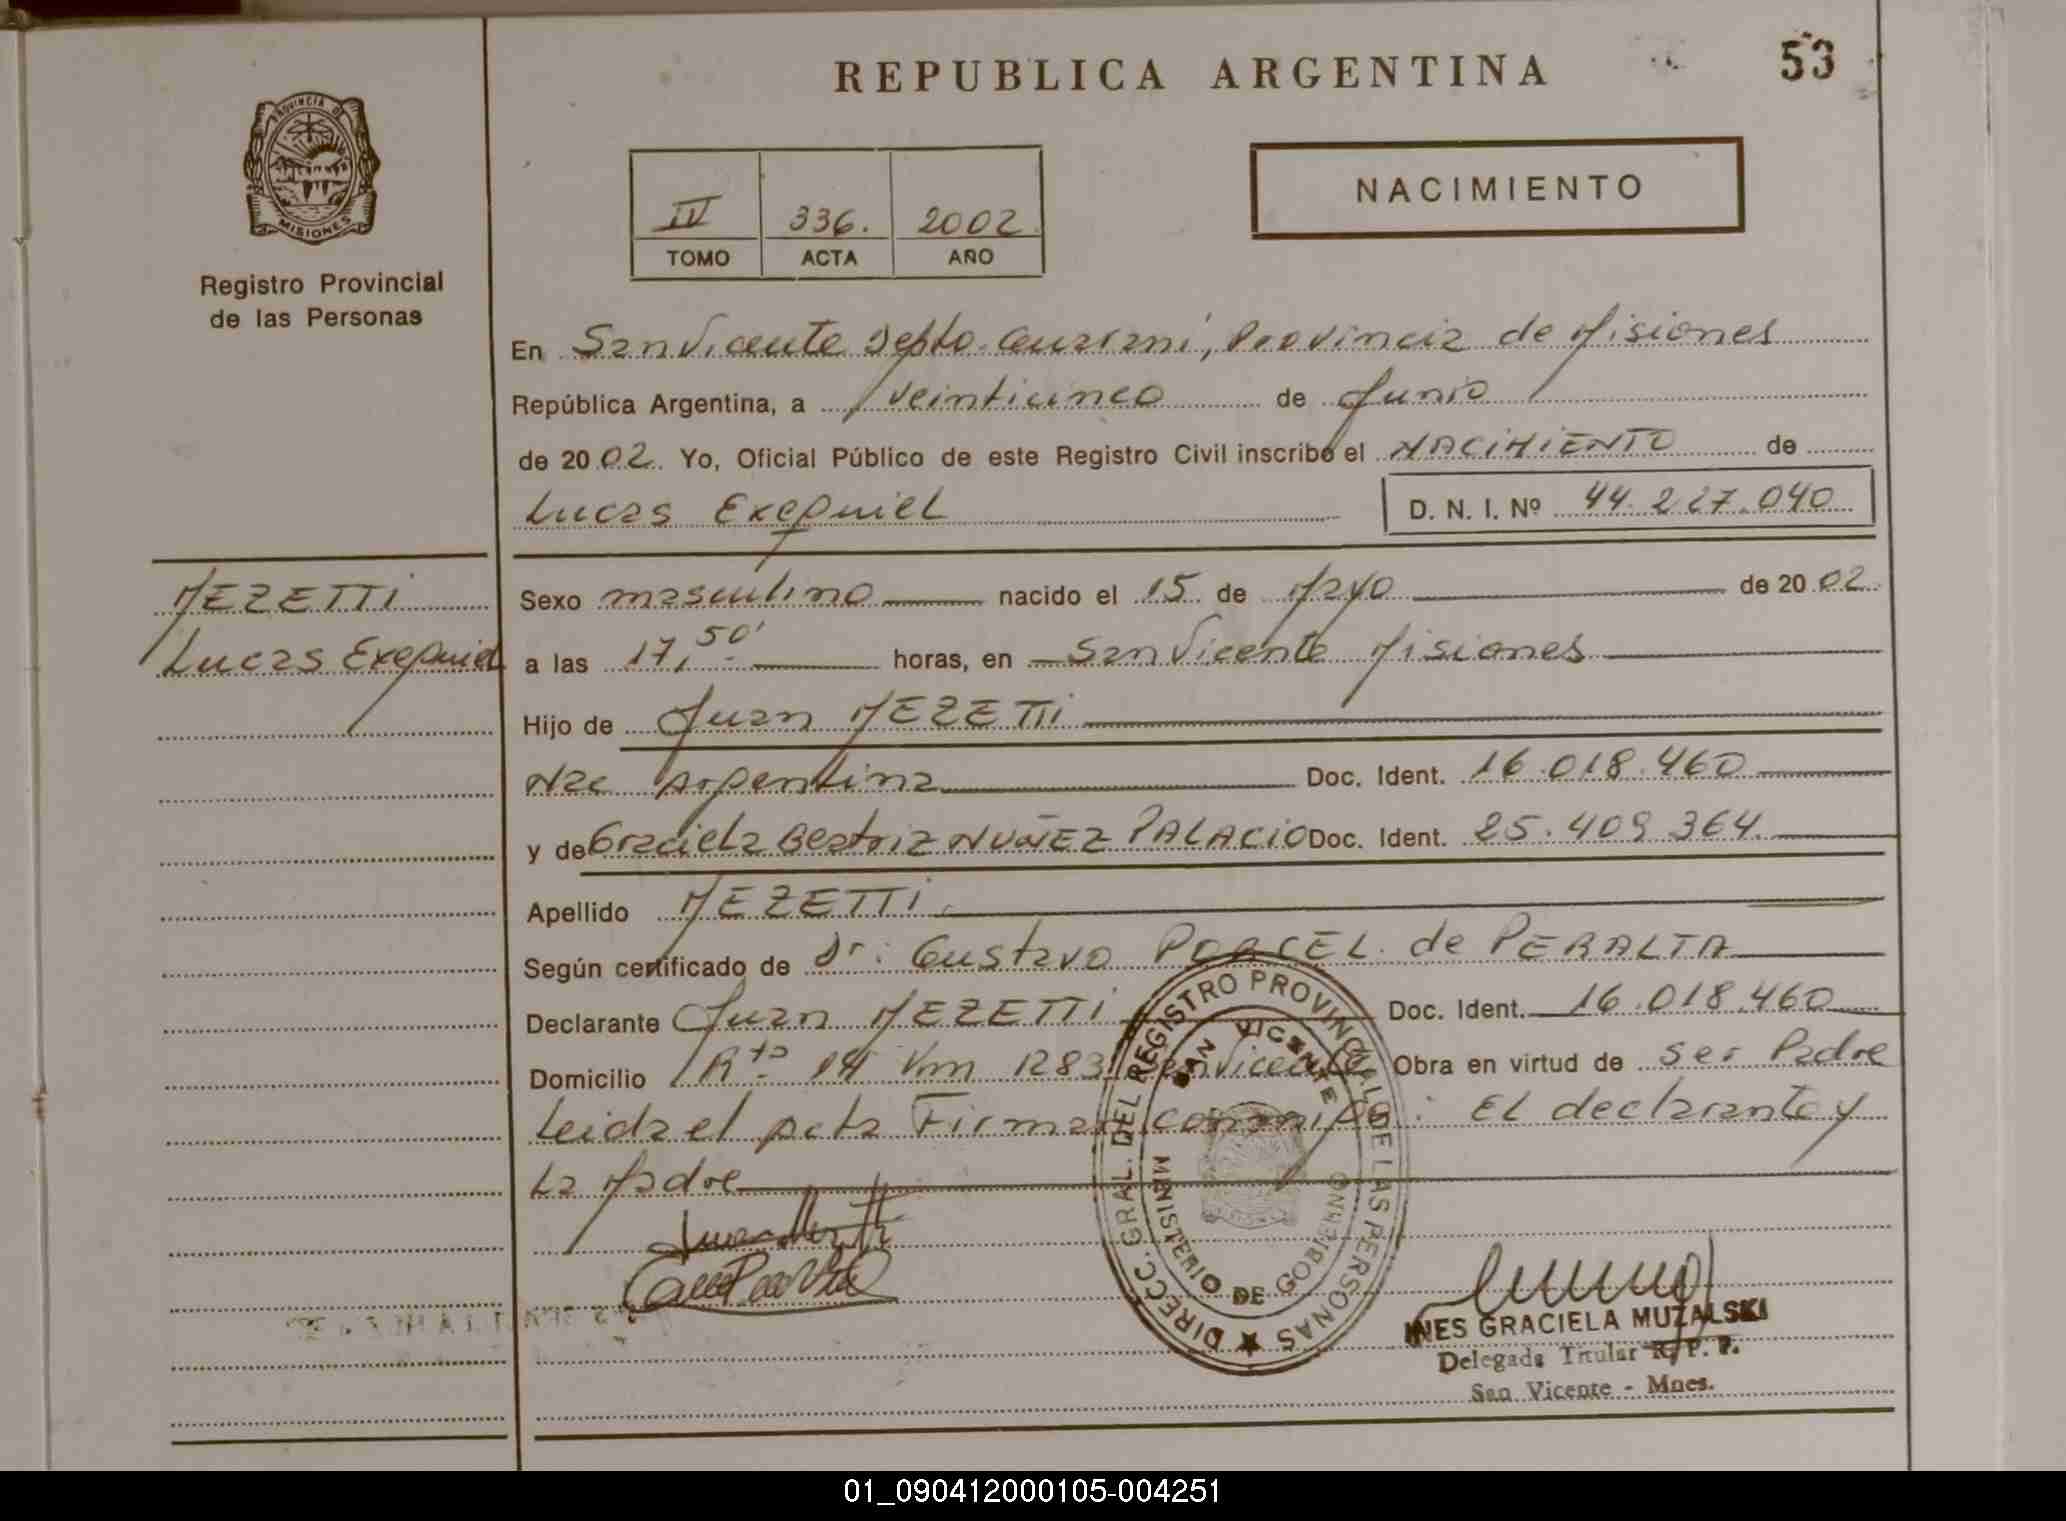 REPUBLICA ARGENTINA
53
PROVINCIA DE
MISIONES
Registro Provincial
de las Personas
IV 336. 2002
TOMO ACTA AÑO
NACIMIENTO
En San Vicente Depto. Guarani, Provincia de Misiones
República Argentina, a Veinticinco de Junio
de 2002. Yo, Oficial Público de este Registro Civil inscribo el NACIMIENTO de
Lucas Exequiel D. N. I. Nº 44.227.040
MEZETTI
Lucas Exequiel
Sexo masculino nacido el 15 de Mayo de 2002
a las 17,50' horas, en San Vicente Misiones
Hijo de Juan MEZETTI
Nac Argentina Doc. Ident. 16.018.460
y de Graciela Beatriz NUÑEZ PALACIO Doc. Ident. 25.409.364
Apellido MEZETTI
Según certificado de Dr: Gustavo PORCEL de PERALTA
Declarante Juan MEZETTI Doc. Ident. 16.018.460
Domicilio Rta 14 Km 1283 San Vicente Obra en virtud de ser Padre
Leida el acta Firman conmigo: El declarante y
La Madre
DIRECC. GRAL. DEL REGISTRO PROVINCIAL DE LAS PERSONAS
SAN VICENTE
MINISTERIO DE GOBIERNO
INES GRACIELA MUZALSKI
Delegada Titular R. P. P.
San Vicente - Mnes.
01_090412000105-004251